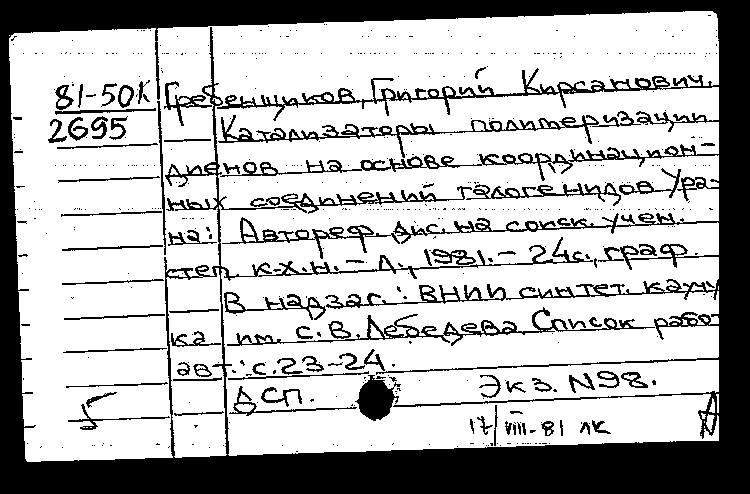 81-50К
2695
Гребенщиков, Григорий Кирсанович.
Катализаторы полимеризации
диенов на основе координацион-
ных соединений галогенидов ура-
на: Автореф. дис. на соиск. учен.
степ. к.х.н. - Л., 1981. - 24с., граф.
В надзаг.: ВНИИ синтет. каучу
ка им. С.В. Лебедева. Список работ
авт.: с.23-24.
ДСП. Экз. N98.
5 17/VIII-81 ЛК